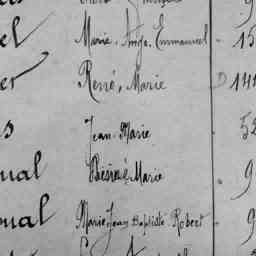 el Marie, Ange, Emmanuel 15
er René, Marie 141
s Jean Marie 52
ual Désiré Marie 9
oual Marie Jean Baptiste Robert 9